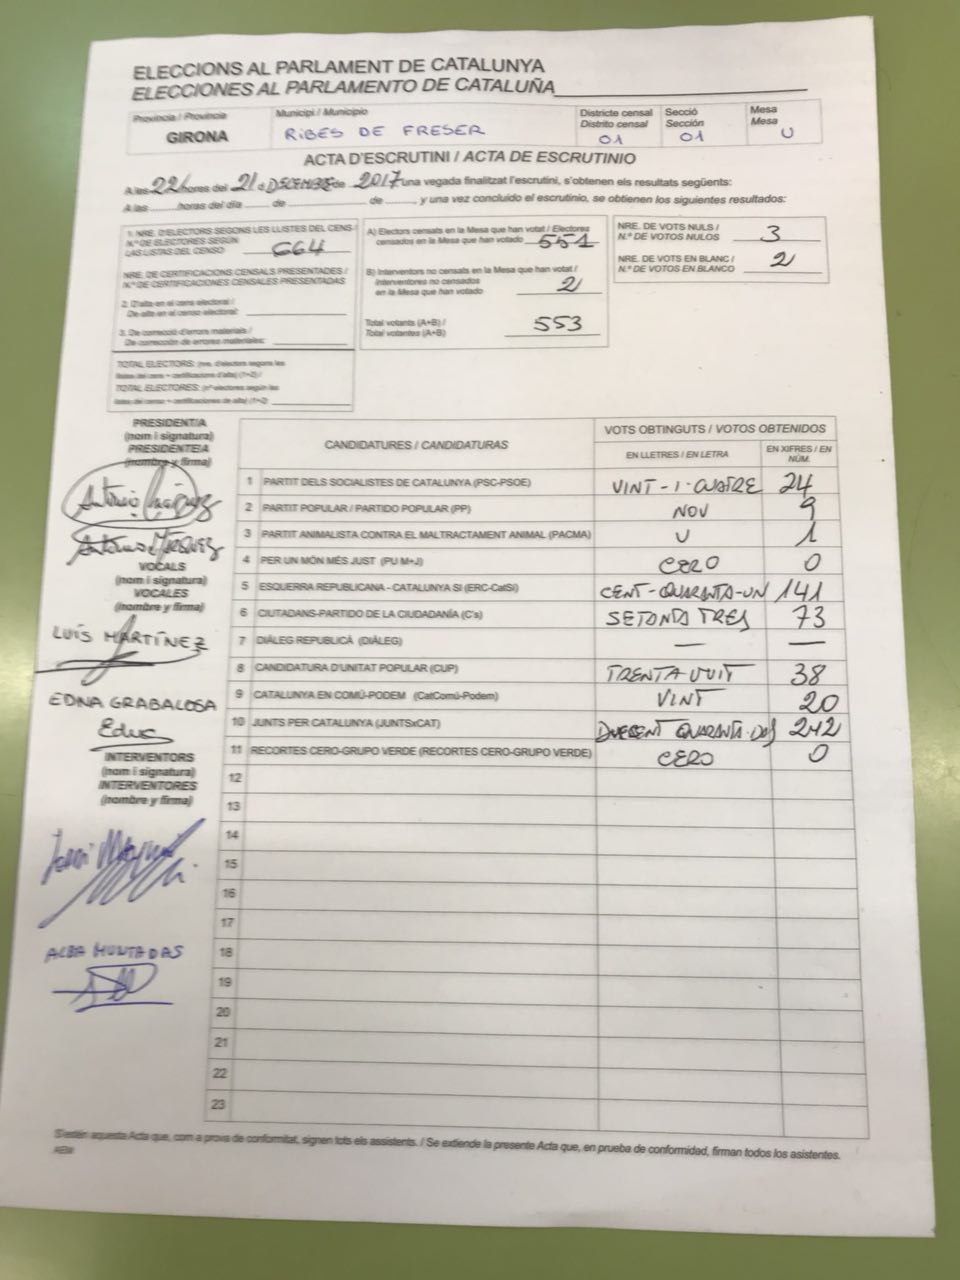 ELECCIONS AL PARLAMENT DE CATALUNYA
ELECCIONES AL PARLAMENTO DE CATALUÑA
Província / Provincia
GIRONA
Municipi / Municipio
RIBES DE FRESER
Districte censal
Distrito censal
01
Secció
Sección
01
Mesa
Mesa
U
ACTA D'ESCRUTINI / ACTA DE ESCRUTINIO
A les 22 hores del 21 d DECEMBRE de 2017 una vegada finalitzat l'escrutini, s'obtenen els resultats següents:
A las ........ horas del día ...... de ................ de ........, y una vez concluido el escrutinio, se obtienen los siguientes resultados:
1. NRE. D'ELECTORS SEGONS LES LLISTES DEL CENS /
N.º DE ELECTORES SEGÚN
LAS LISTAS DEL CENSO 664
NRE. DE CERTIFICACIONS CENSALS PRESENTADES /
N.º DE CERTIFICACIONES CENSALES PRESENTADAS
2. D'alta en el cens electoral /
De alta en el censo electoral:
3. De correcció d'errors materials /
De corrección de errores materiales:
TOTAL ELECTORS: (nre. d'electors segons les
llistes del cens + certificacions d'alta) (1+2) /
TOTAL ELECTORES: (nº electores según las
listas del censo + certificaciones de alta) (1+2)
A) Electors censats en la Mesa que han votat / Electores
censados en la Mesa que han votado 551
B) Interventors no censats en la Mesa que han votat /
Interventores no censados
en la Mesa que han votado 2
Total votants (A+B) /
Total votantes (A+B) 553
NRE. DE VOTS NULS /
N.º DE VOTOS NULOS 3
NRE. DE VOTS EN BLANC /
N.º DE VOTOS EN BLANCO 2
PRESIDENT/A
(nom i signatura)
PRESIDENTE/A
(nombre y firma)
Antonio Márquez
VOCALS
(nom i signatura)
VOCALES
(nombre y firma)
LUÍS MARTÍNEZ
EDNA GRABALOSA
Edna
INTERVENTORS
(nom i signatura)
INTERVENTORES
(nombre y firma)
ALBA MUNTADAS
CANDIDATURES / CANDIDATURAS
VOTS OBTINGUTS / VOTOS OBTENIDOS
EN LLETRES / EN LETRA
EN XIFRES / EN NÚM.
1 PARTIT DELS SOCIALISTES DE CATALUNYA (PSC-PSOE) VINT-I-CUATRE 24
2 PARTIT POPULAR / PARTIDO POPULAR (PP) NOV 9
3 PARTIT ANIMALISTA CONTRA EL MALTRACTAMENT ANIMAL (PACMA) U 1
4 PER UN MÓN MÉS JUST (PU M+J) CERO 0
5 ESQUERRA REPUBLICANA - CATALUNYA SÍ (ERC-CatSí) CENT-QUARANTA-UN 141
6 CIUTADANS-PARTIDO DE LA CIUDADANÍA (C's) SETONTA TRES 73
7 DIÀLEG REPUBLICÀ (DIÀLEG) — —
8 CANDIDATURA D'UNITAT POPULAR (CUP) TRENTA VUIT 38
9 CATALUNYA EN COMÚ-PODEM (CatComú-Podem) VINT 20
10 JUNTS PER CATALUNYA (JUNTSxCAT) DUECENT QUARANTA-DOS 242
11 RECORTES CERO-GRUPO VERDE (RECORTES CERO-GRUPO VERDE) CERO 0
12
13
14
15
16
17
18
19
20
21
22
23
S'estén aquesta Acta que, com a prova de conformitat, signen tots els assistents. / Se extiende la presente Acta que, en prueba de conformidad, firman todos los asistentes.